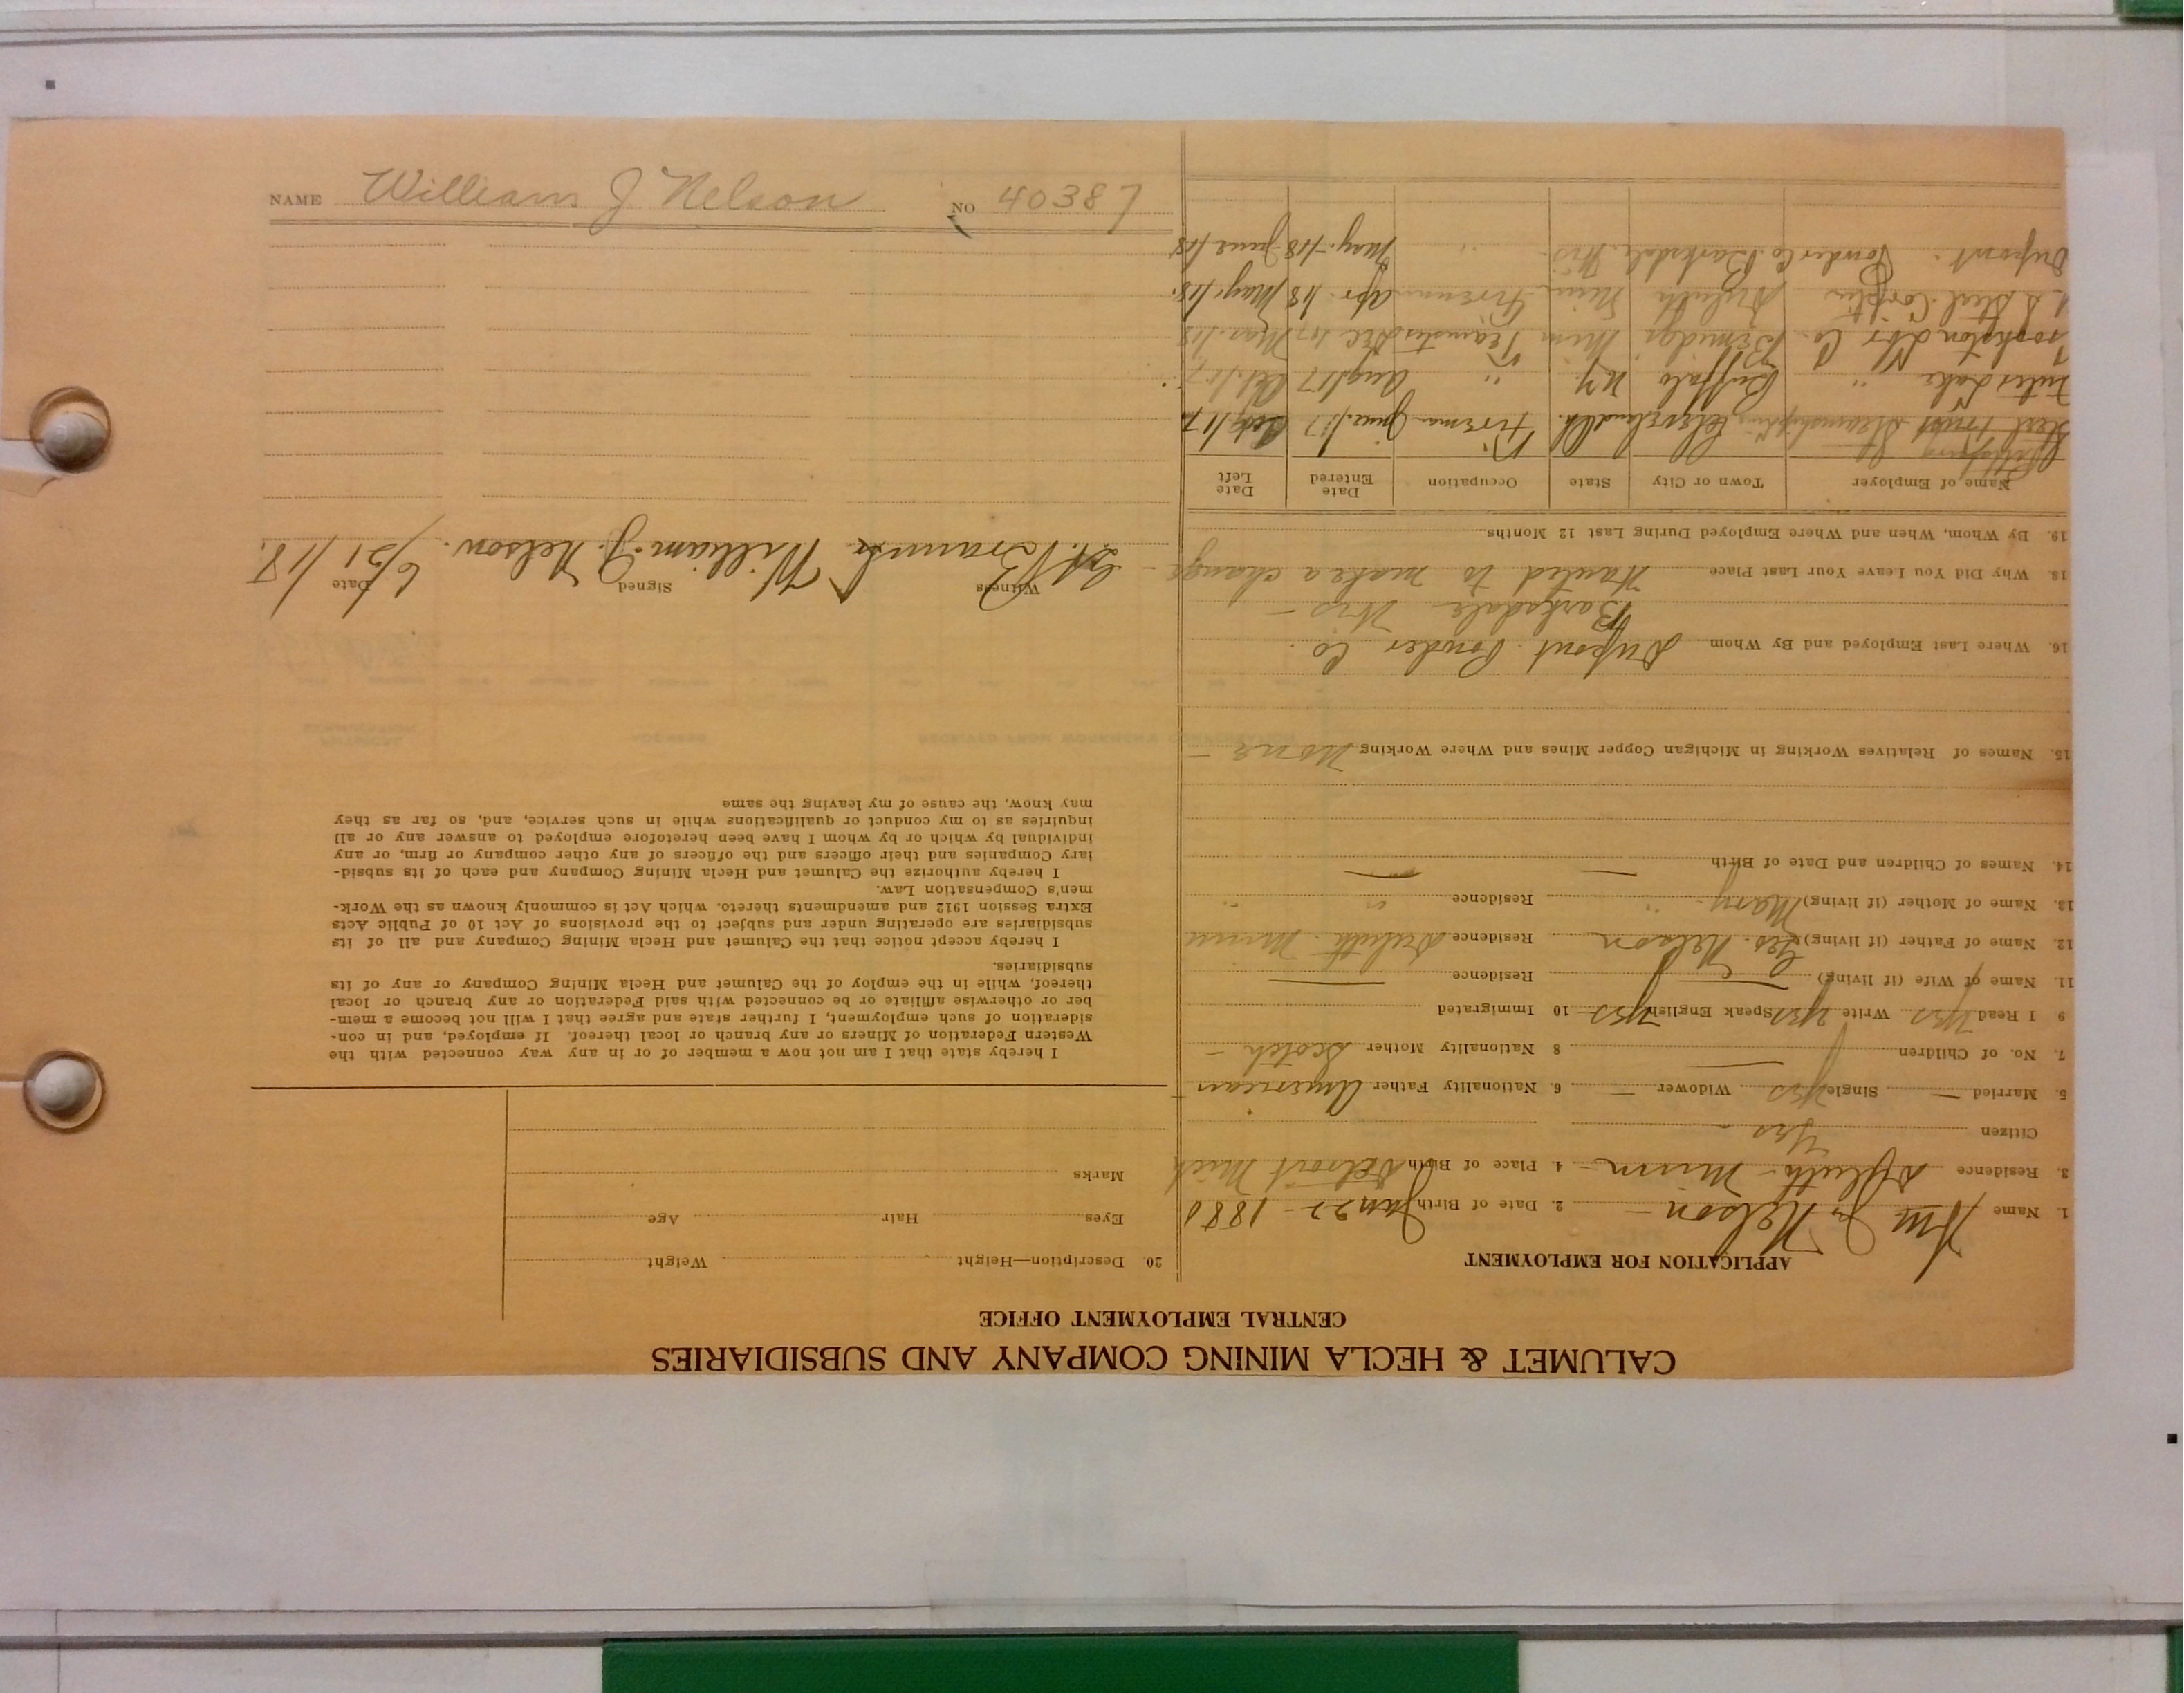 CALUMET & HECLA MINING COMPANY AND SUBSIDIARIES
CENTRAL EMPLOYMENT OFFICE
APPLICATION FOR EMPLOYMENT
1. Name Wm J. Nelson 2. Date of Birth Jan 22 - 1880
3. Residence Duluth - Minn 4. Place of Birth Detroit Mich
Citizen Yes
5. Married Single yes Widower 6. Nationality Father American
7. No. of Children 8 Nationality Mother Scotch
9 I Read yes Write yes Speak English yes 10 Immigrated
11. Name of Wife (if living) Residence
12. Name of Father (if living) Geo. Nelson Residence Duluth - Minn
13. Name of Mother (if living) Mary " Residence " "
14. Names of Children and Date of Birth
15. Names of Relatives Working in Michigan Copper Mines and Where Working None
16. Where Last Employed and By Whom Dupont Powder Co.
Barksdale Wis
18. Why Did You Leave Your Last Place Wanted to make a change
19. By Whom, When and Where Employed During Last 12 Months
Name of Employer Town or City State Occupation Date Entered Date Left
Steel Trust Steamship Cleveland O. Fireman June/17
" Buffalo N.Y. " Aug/17 Oct./17
Co. Bemidji Minn Teamster Dec 17 Mar./18
U.S Steel Duluth Minn Fireman Apr. 18 May./18.
Dupont. Powder Co. Barksdale Wis " May-/18 June/18
20. Description—Height Weight
Eyes Hair Age
Marks
I hereby state that I am not now a member of or in any way connected with the
Western Federation of Miners or any branch or local thereof. If employed, and in con-
sideration of such employment, I further state and agree that I will not become a mem-
ber or otherwise affiliate or be connected with said Federation or any branch or local
thereof, while in the employ of the Calumet and Hecla Mining Company or any of its
subsidiaries.
I hereby accept notice that the Calumet and Hecla Mining Company and all of its
subsidiaries are operating under and subject to the provisions of Act 10 of Public Acts
Extra Session 1912 and amendments thereto, which Act is commonly known as the Work-
men's Compensation Law.
I hereby authorize the Calumet and Hecla Mining Company and each of its subsid-
iary Companies and their officers and the officers of any other company or firm, or any
individual by which or by whom I have been heretofore employed to answer any or all
inquiries as to my conduct or qualifications while in such service, and, so far as they
may know, the cause of my leaving the same
Witness Signed Date
William J. Nelson. 6/21/18.
NAME William J Nelson NO 40387